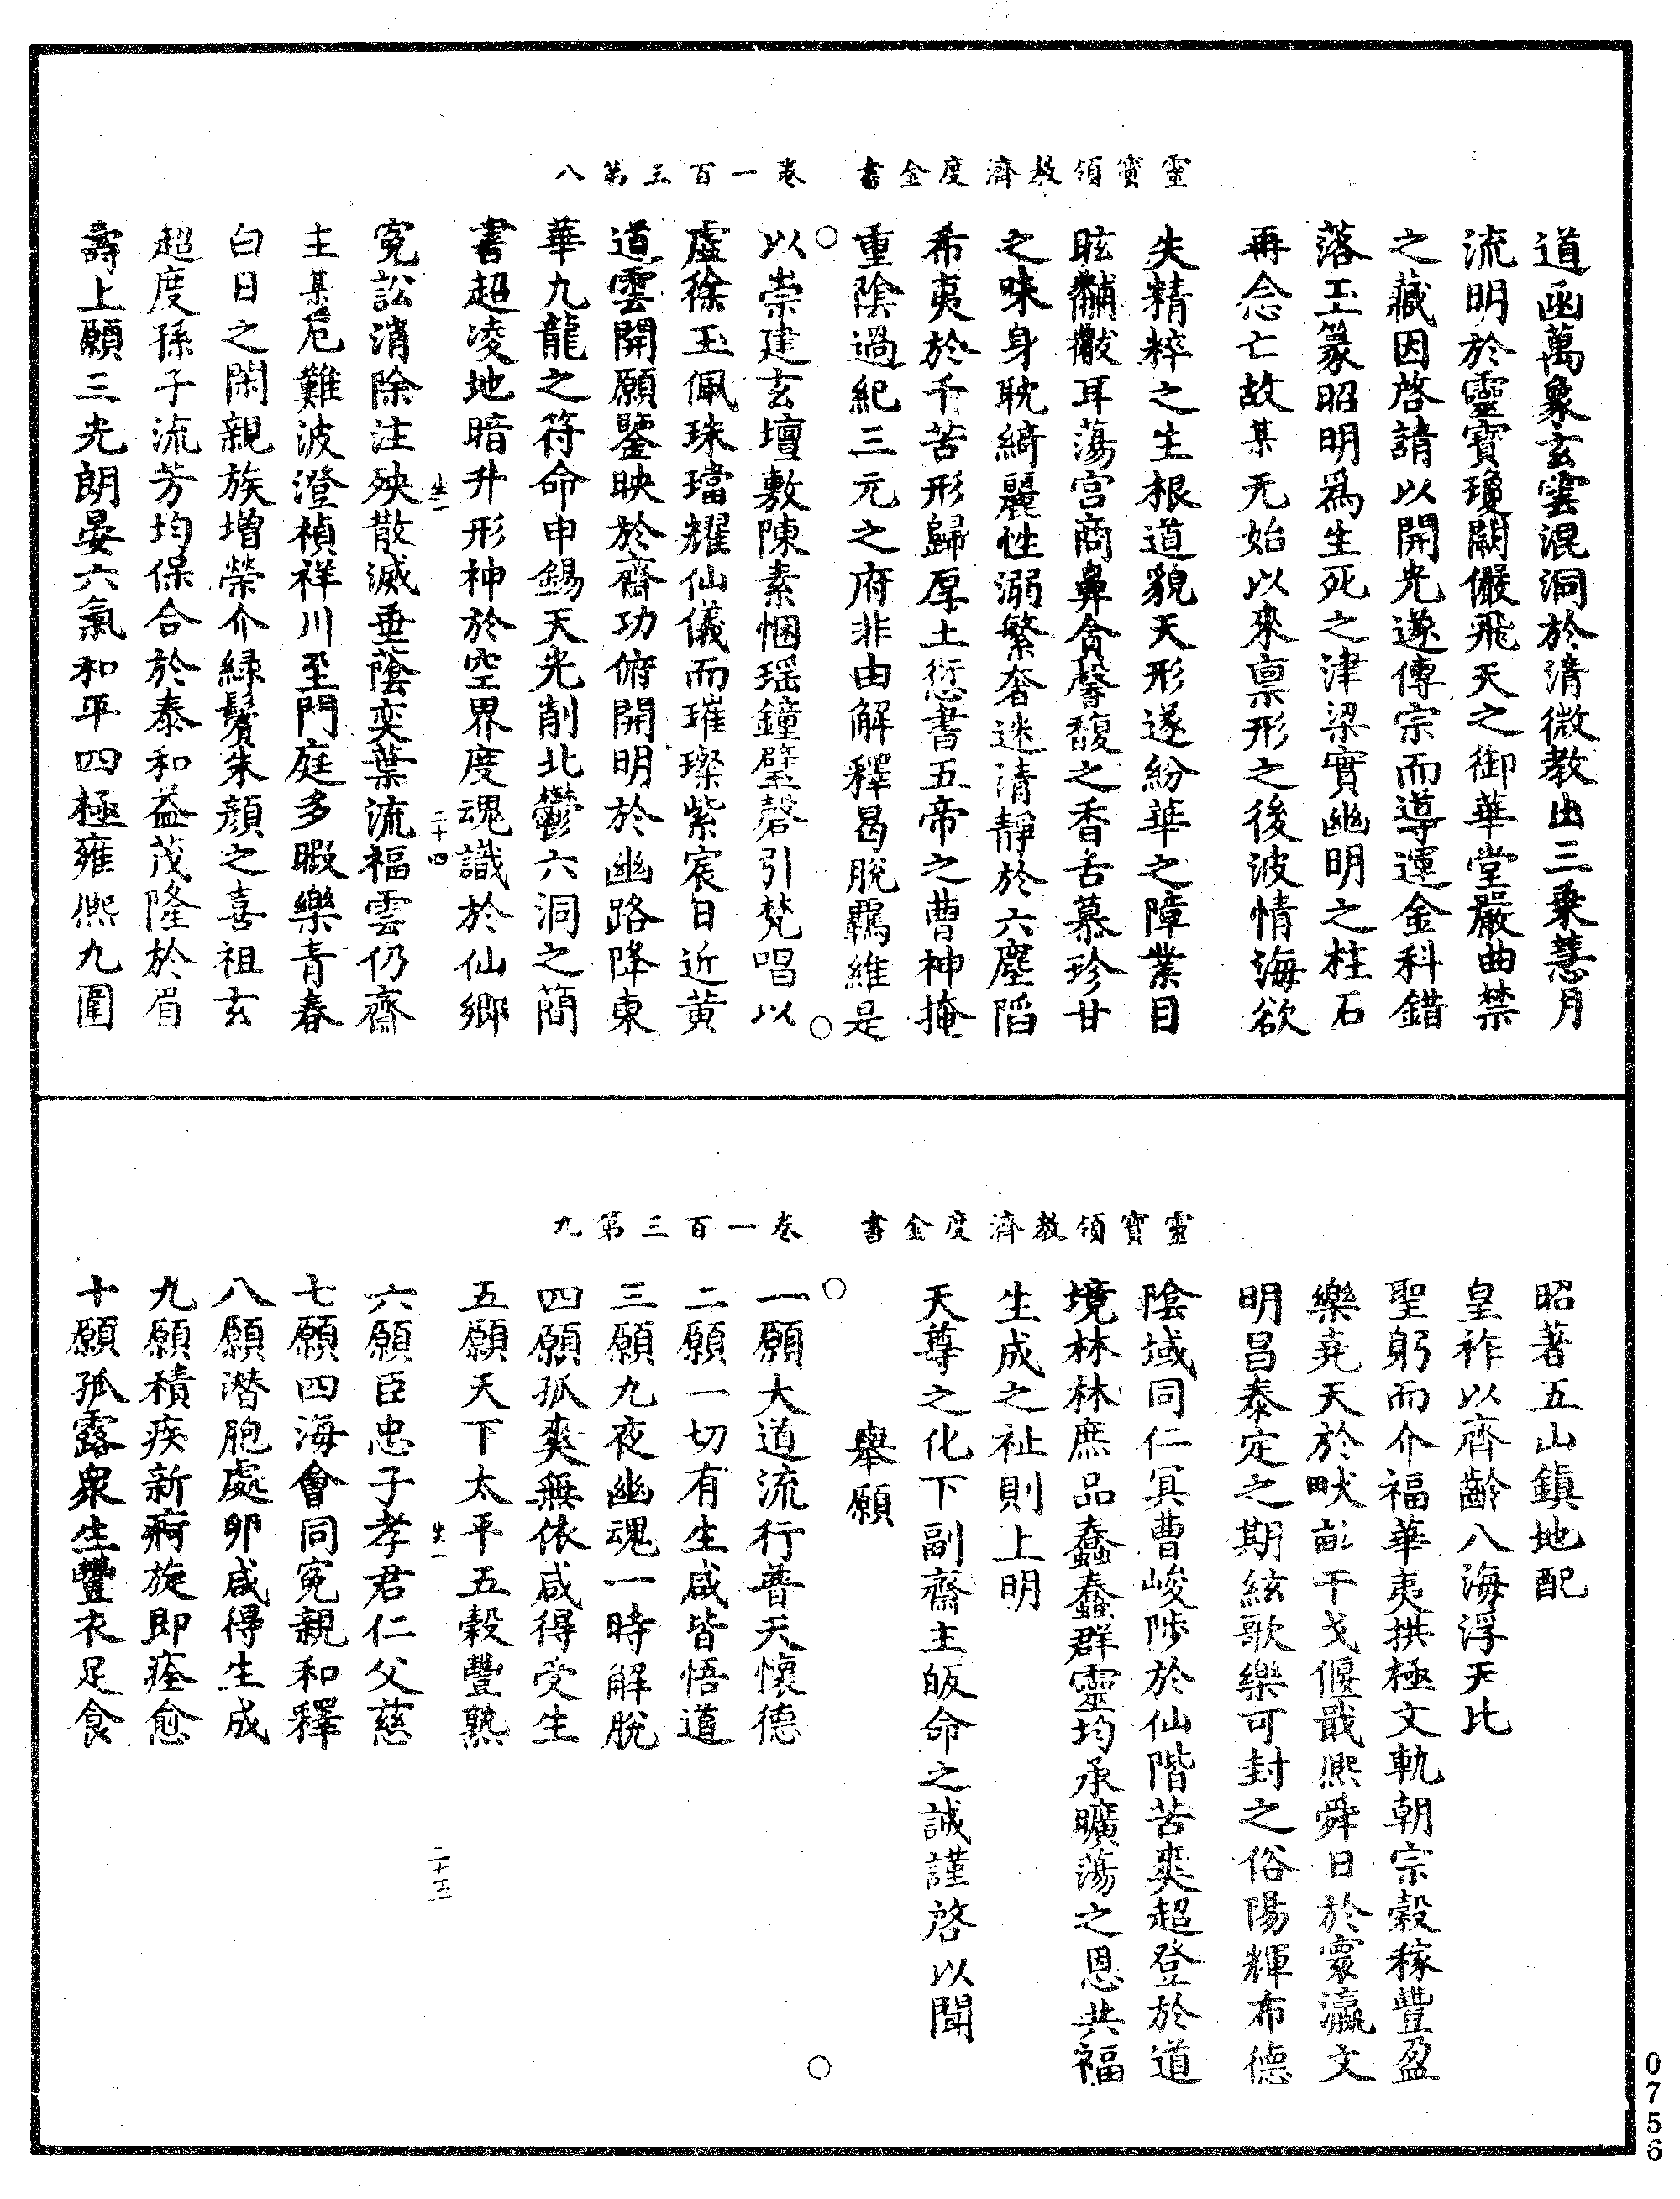 靈寶領教濟度金書 卷一百三第八
道函萬象玄雲混洞於清微教出三乗慧月
流明於靈寶瓊闢儼飛天之御華堂嚴曲禁
之藏因啓請以開光遂傳宗而導運金科錯
落玉篆昭明爲生死之津梁實幽明之柱石
再念亡故某无始以來禀形之後波情海欲
失精粹之生根道貌天形遂紛華之障業目
眩黼黻耳蕩宫商鼻貪馨馥之香舌慕珍甘
之味身耽綺麗性溺繁奢迷清靜於六塵陷
希夷於千苦形歸厚土愆書五帝之曹神掩
重陰過紀三元之府非由解釋曷脫羈維是
以崇建玄壇敷陳素悃瑶鐘璧磬引梵唱以
虚徐玉佩珠璫耀仙儀而璀璨紫宸日近黄
道雲開願鑒映於齋功俯開明於幽路降東
華九龍之符命申錫天光削北鬱六洞之簡
書超凌地暗升形神於空界度魂識於仙鄉
生一 二十四
寃訟消除注殃散滅垂蔭奕葉流福雲仍齋
主某危難波澄禎祥川至門庭多暇樂青春
白日之閑親族增榮介緑鬢朱顔之喜祖玄
超度孫子流芳均保合於泰和益茂隆於眉
壽上願三光朗晏六氣和平四極雍熙九圍
靈寶領教濟度金書 卷一百三第九
昭著五山鎮地配
皇祚以齊齡八海浮天比
聖躬而介福華夷拱極文軌朝宗穀稼豐盈
樂堯天於畎畝干戈偃戢熙舜日於寰瀛文
明昌泰定之期絃歌樂可封之俗陽輝布德
陰域同仁冥曹峻陟於仙階苦爽超登於道
境林林庶品蠢蠢群靈均承曠蕩之恩共福
生成之祉則上明
天尊之化下副齋主皈命之誠謹啓以聞
舉願
一願大道流行普天懷德
二願一切有生咸皆悟道
三願九夜幽魂一時解脫
四願孤爽無依咸得受生
五願天下太平五穀豐熟
生一 二十五
六願臣忠子孝君仁父慈
七願四海會同寃親和釋
八願潜胞處卵咸得生成
九願積疾新痾旋即痊愈
十願孤露衆生豐衣足食
0756